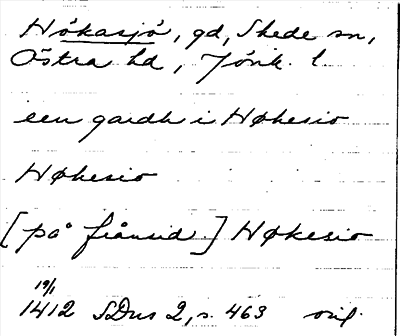 Hökasjö, gd, Skede sn,
Östra hd, Jönk. l.
een gardh i Høkesio
Høkesio
[på frånsid.] Høkesio
19/1
1412 SDns 2, s. 463 orig.